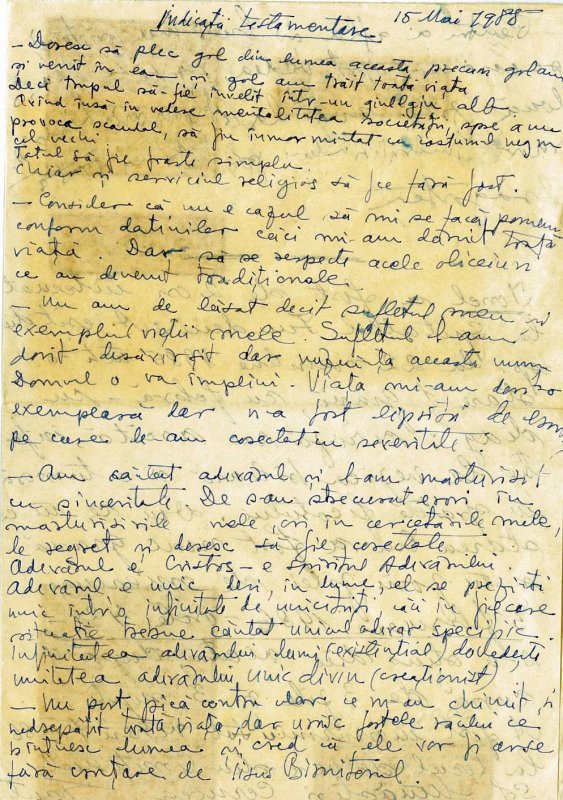 Indicații testamentare 15 Mai 1988
– Doresc să plec gol din lumea aceasta precum gol am
și venit în ea – și gol am trăit toată viața
Deci trupul să-fie învelit într-un giulgiu alb.
Avînd însă în vedere mentalitatea societății, spre a nu
provoca scandal, să fiu înmormîntat cu costumul negru
cel vechi.
Totul să fie foarte simplu.
Chiar și serviciul religios să fie fără fast.
– Consider că nu e cazul să mi se facă pomeni
conform datinilor căci mi-am dăruit toată
viața. Dar să se respecte acele obiceiuri
ce au devenit tradiționale.
– Nu am de lăsat decît sufletul meu și
exemplul vieții mele. Sufletul l-am
dorit desăvîrșit dar numai la aceasta numai
Domnul o va împlini – Viața mi-am dorit-o
exemplară dar n-a fost lipsită de erori
pe care le-am corectat cu severitate.
– Am căutat adevărul și l-am mărturisit
cu sinceritate. De s-au strecurat erori în
mărturisirile mele, ori în cercetările mele,
le regret și doresc să fie corectate.
Adevărul e Cristos – e spiritul Adevărului.
Adevărul e unic, deși, în lume, el se prezintă
unic într-o infinitate de unicități, căci în fiecare
situație trebue căutat unicul adevăr specific.
Infinitatea adevărului lumii (existențial) dovedește
unitatea adevărului unic divin (creaționist)
– Nu port pică contra celor ce m-au chinuit și
nedreptățit toată viața dar urăsc forțele răului ce
bîntuesc lumea și cred că ele vor fi arse
fără cruțare de Iisus Biruitorul.